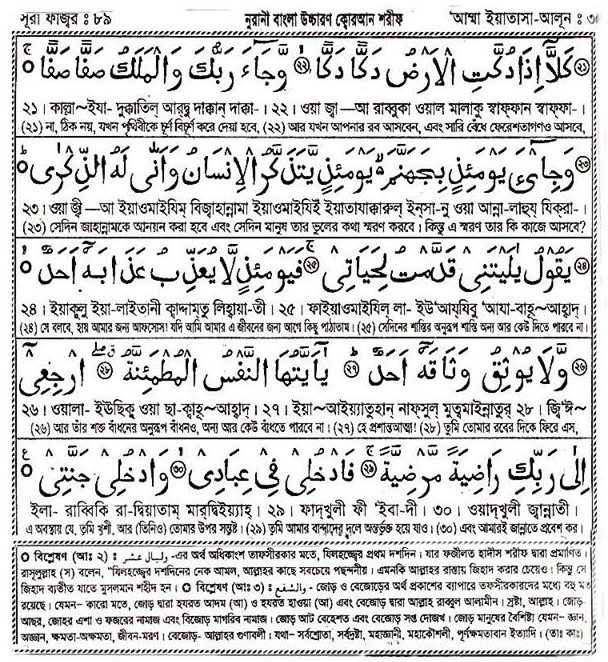 সূরা ফাজ্‌র : ৮৯ নূরানী বাংলা উচ্চারণ ক্বোরআন শরীফ 'আম্মা ইয়াতাসা-আলূন : ৩০
كَلَّا إِذَا دُكَّتِ الْأَرْضُ دَكًّا دَكًّا ۝ وَجَاءَ رَبُّكَ وَالْمَلَكُ صَفًّا صَفًّا
২১। কাল্লা~ইযা- দুক্কাতিল্ আর্‌দ্বু দাক্কান্ দাক্কা-। ২২। ওয়া জ্বা—আ রাব্বুকা ওয়াল মালাকু স্বাফ্‌ফান স্বাফ্‌ফা-।
(২১) না, ঠিক নয়, যখন পৃথিবীকে চূর্ণ বিচূর্ণ করে দেয়া হবে, (২২) আর যখন আপনার রব আসবেন, এবং সারি বেঁধে ফেরেশতাগণও আসবে,
وَجِايْءَ يَوْمَئِذٍ بِجَهَنَّمَ يَوْمَئِذٍ يَّتَذَكَّرُ الْإِنْسَانُ وَأَنّٰى لَهُ الذِّكْرٰى
২৩। ওয়া জ্বী—আ ইয়াওমাইযিম্ বিজ্বাহান্নামা ইয়াওমাইযিইঁ ইয়াতাযাক্কারুল্ ইন্‌সা-নু ওয়া আন্না-লাহুয্ যিক্‌রা-।
(২৩) সেদিন জাহান্নামকে আনয়ন করা হবে এবং সেদিন মানুষ তার ভুলের কথা স্মরণ করবে। কিন্তু এ স্মরণ তার কি কাজে আসবে?
يَقُولُ يٰلَيْتَنِي قَدَّمْتُ لِحَيَاتِي ۝ فَيَوْمَئِذٍ لَّا يُعَذِّبُ عَذَابَهٗ أَحَدٌ
২৪। ইয়াকুলু ইয়া-লাইতানী ক্বাদ্দাম্‌তু লিহ্বায়া-তী। ২৫। ফাইয়াওমাইযিল্ লা- ইউ'আয্‌যিবু 'আযা-বাহূ~আহ্বাদ্।
(২৪) সে বলবে, হায় আমার জন্য আফসোস! যদি আমি আমার এ জীবনের জন্য আগে কিছু পাঠাতাম। (২৫) সেদিনের শাস্তির অনুরূপ শাস্তি অন্য আর কেউ দিতে পারবে না।
وَّلَا يُوثِقُ وَثَاقَهٗ أَحَدٌ ۝ يٰأَيَّتُهَا النَّفْسُ الْمُطْمَئِنَّةُ ۝ ارْجِعِي
২৬। ওয়ালা- ইঊছিকু ওয়া ছা-ক্বাহূ~আহ্বাদ্। ২৭। ইয়া~আইয়্যাতুহান্ নাফ্‌সুল্ মুত্বমাইন্নাতুর্ ২৮। জ্বি'ঈ~
(২৬) আর তাঁর শক্ত বাঁধনের অনুরূপ বাঁধনও, অন্য আর কেউ বাঁধতে পারবে না। (২৭) হে প্রশান্তআত্মা! (২৮) তুমি তোমার রবের দিকে ফিরে এস,
إِلٰى رَبِّكِ رَاضِيَةً مَّرْضِيَّةً ۝ فَادْخُلِي فِي عِبَادِي ۝ وَادْخُلِي جَنَّتِي
ইলা- রাব্বিকি রা-দ্বিয়াতাম্ মার্‌দ্বিইয়্যাহ্। ২৯। ফাদ্‌খুলী ফী 'ইবা-দী। ৩০। ওয়াদ্‌খুলী জ্বান্নাতী।
এ অবস্থায় যে, তুমি খুশী, আর (তিনিও) তোমার উপর সন্তুষ্ট। (২৯) তুমি আমার বান্দাদের দলে অন্তর্ভুক্ত হয়ে যাও। (৩০) এবং আমারই জান্নাতে প্রবেশ কর।
বিশ্লেষণ (আঃ ২) : وليال عشر -এর অর্থ অধিকাংশ তাফসীরকার মতে, যিলহজ্বের প্রথম দশদিন। যার ফজীলত হাদীস শরীফ দ্বারা প্রমাণিত।
রাসূলুল্লাহ (স) বলেন, "যিলহজ্বের দশদিনের নেক আমল, আল্লাহর কাছে সবচেয়ে পছন্দনীয়। এমনকি আল্লাহর রাস্তায় জিহাদ করার চেয়েও। কিন্তু সে
জিহাদ ব্যতীত যাতে মুসলমান শহীদ হন। বিশ্লেষণ (আঃ ৩) : والشفع : জোড় ও বেজোড়ের অর্থ প্রকাশের ব্যাপারে তফসীরকারদের মধ্যে বহু মত
রয়েছে। যেমন– কারো মতে, জোড় দ্বারা হযরত আদম (আ) ও হযরত হাওয়া (আ) এবং বেজোড় দ্বারা আল্লাহ রাব্বুল আলামীন। স্রষ্টা, আল্লাহ। জোড়-
আছর, জোহর এশা ও ফজরের নামাজ এবং বিজোড় মাগরিব নামাজ। জোড় আট বেহেশত এবং বেজোড় সপ্ত দোজখ। জোড় মানুষের বৈশিষ্ট্য যেমন– জ্ঞান-
অজ্ঞান, ক্ষমতা-অক্ষমতা, জীবন-মরণ। বেজোড়- আল্লাহর গুণাবলী। যথা– সর্বশ্রোতা, সর্বদ্রষ্টা, মহাজ্ঞানী, মহাকৌশলী, পূর্ণক্ষমতাবান ইত্যাদি। (তাঃ কাঃ)